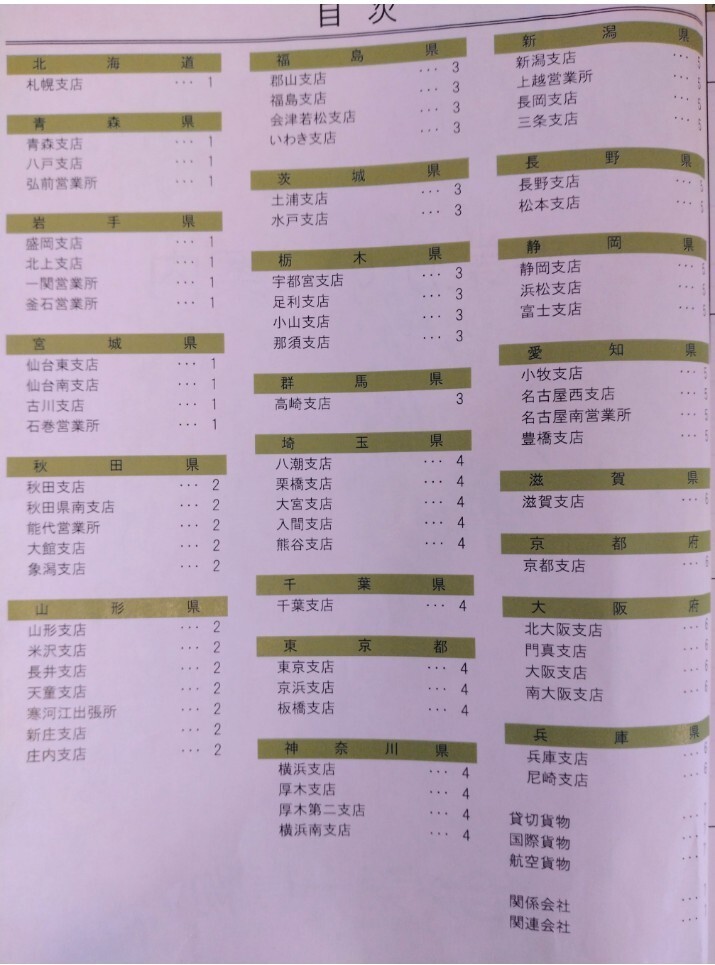 目次
北海道
札幌支店 … 1
青森県
青森支店 … 1
八戸支店 … 1
弘前営業所 … 1
岩手県
盛岡支店 … 1
北上支店 … 1
一関営業所 … 1
釜石営業所 … 1
宮城県
仙台東支店 … 1
仙台南支店 … 1
古川支店 … 1
石巻営業所 … 1
秋田県
秋田支店 … 2
秋田県南支店 … 2
能代営業所 … 2
大館支店 … 2
象潟支店 … 2
山形県
山形支店 … 2
米沢支店 … 2
長井支店 … 2
天童支店 … 2
寒河江出張所 … 2
新庄支店 … 2
庄内支店 … 2
福島県
郡山支店 … 3
福島支店 … 3
会津若松支店 … 3
いわき支店 … 3
茨城県
土浦支店 … 3
水戸支店 … 3
栃木県
宇都宮支店 … 3
足利支店 … 3
小山支店 … 3
那須支店 … 3
群馬県
高崎支店 3
埼玉県
八潮支店 … 4
栗橋支店 … 4
大宮支店 … 4
入間支店 … 4
熊谷支店 … 4
千葉県
千葉支店 … 4
東京都
東京支店 … 4
京浜支店 … 4
板橋支店 … 4
神奈川県
横浜支店 … 4
厚木支店 … 4
厚木第二支店 … 4
横浜南支店 … 4
新潟県
新潟支店 …
上越営業所 …
長岡支店 …
三条支店 …
長野県
長野支店 …
松本支店 …
静岡県
静岡支店 …
浜松支店 …
富士支店 …
愛知県
小牧支店 …
名古屋西支店 …
名古屋南営業所 …
豊橋支店 …
滋賀県
滋賀支店 …
京都府
京都支店 …
大阪府
北大阪支店 …
門真支店 …
大阪支店 …
南大阪支店 …
兵庫県
兵庫支店 …
尼崎支店 …
貸切貨物 …
国際貨物 …
航空貨物 …
関係会社 …
関連会社 …